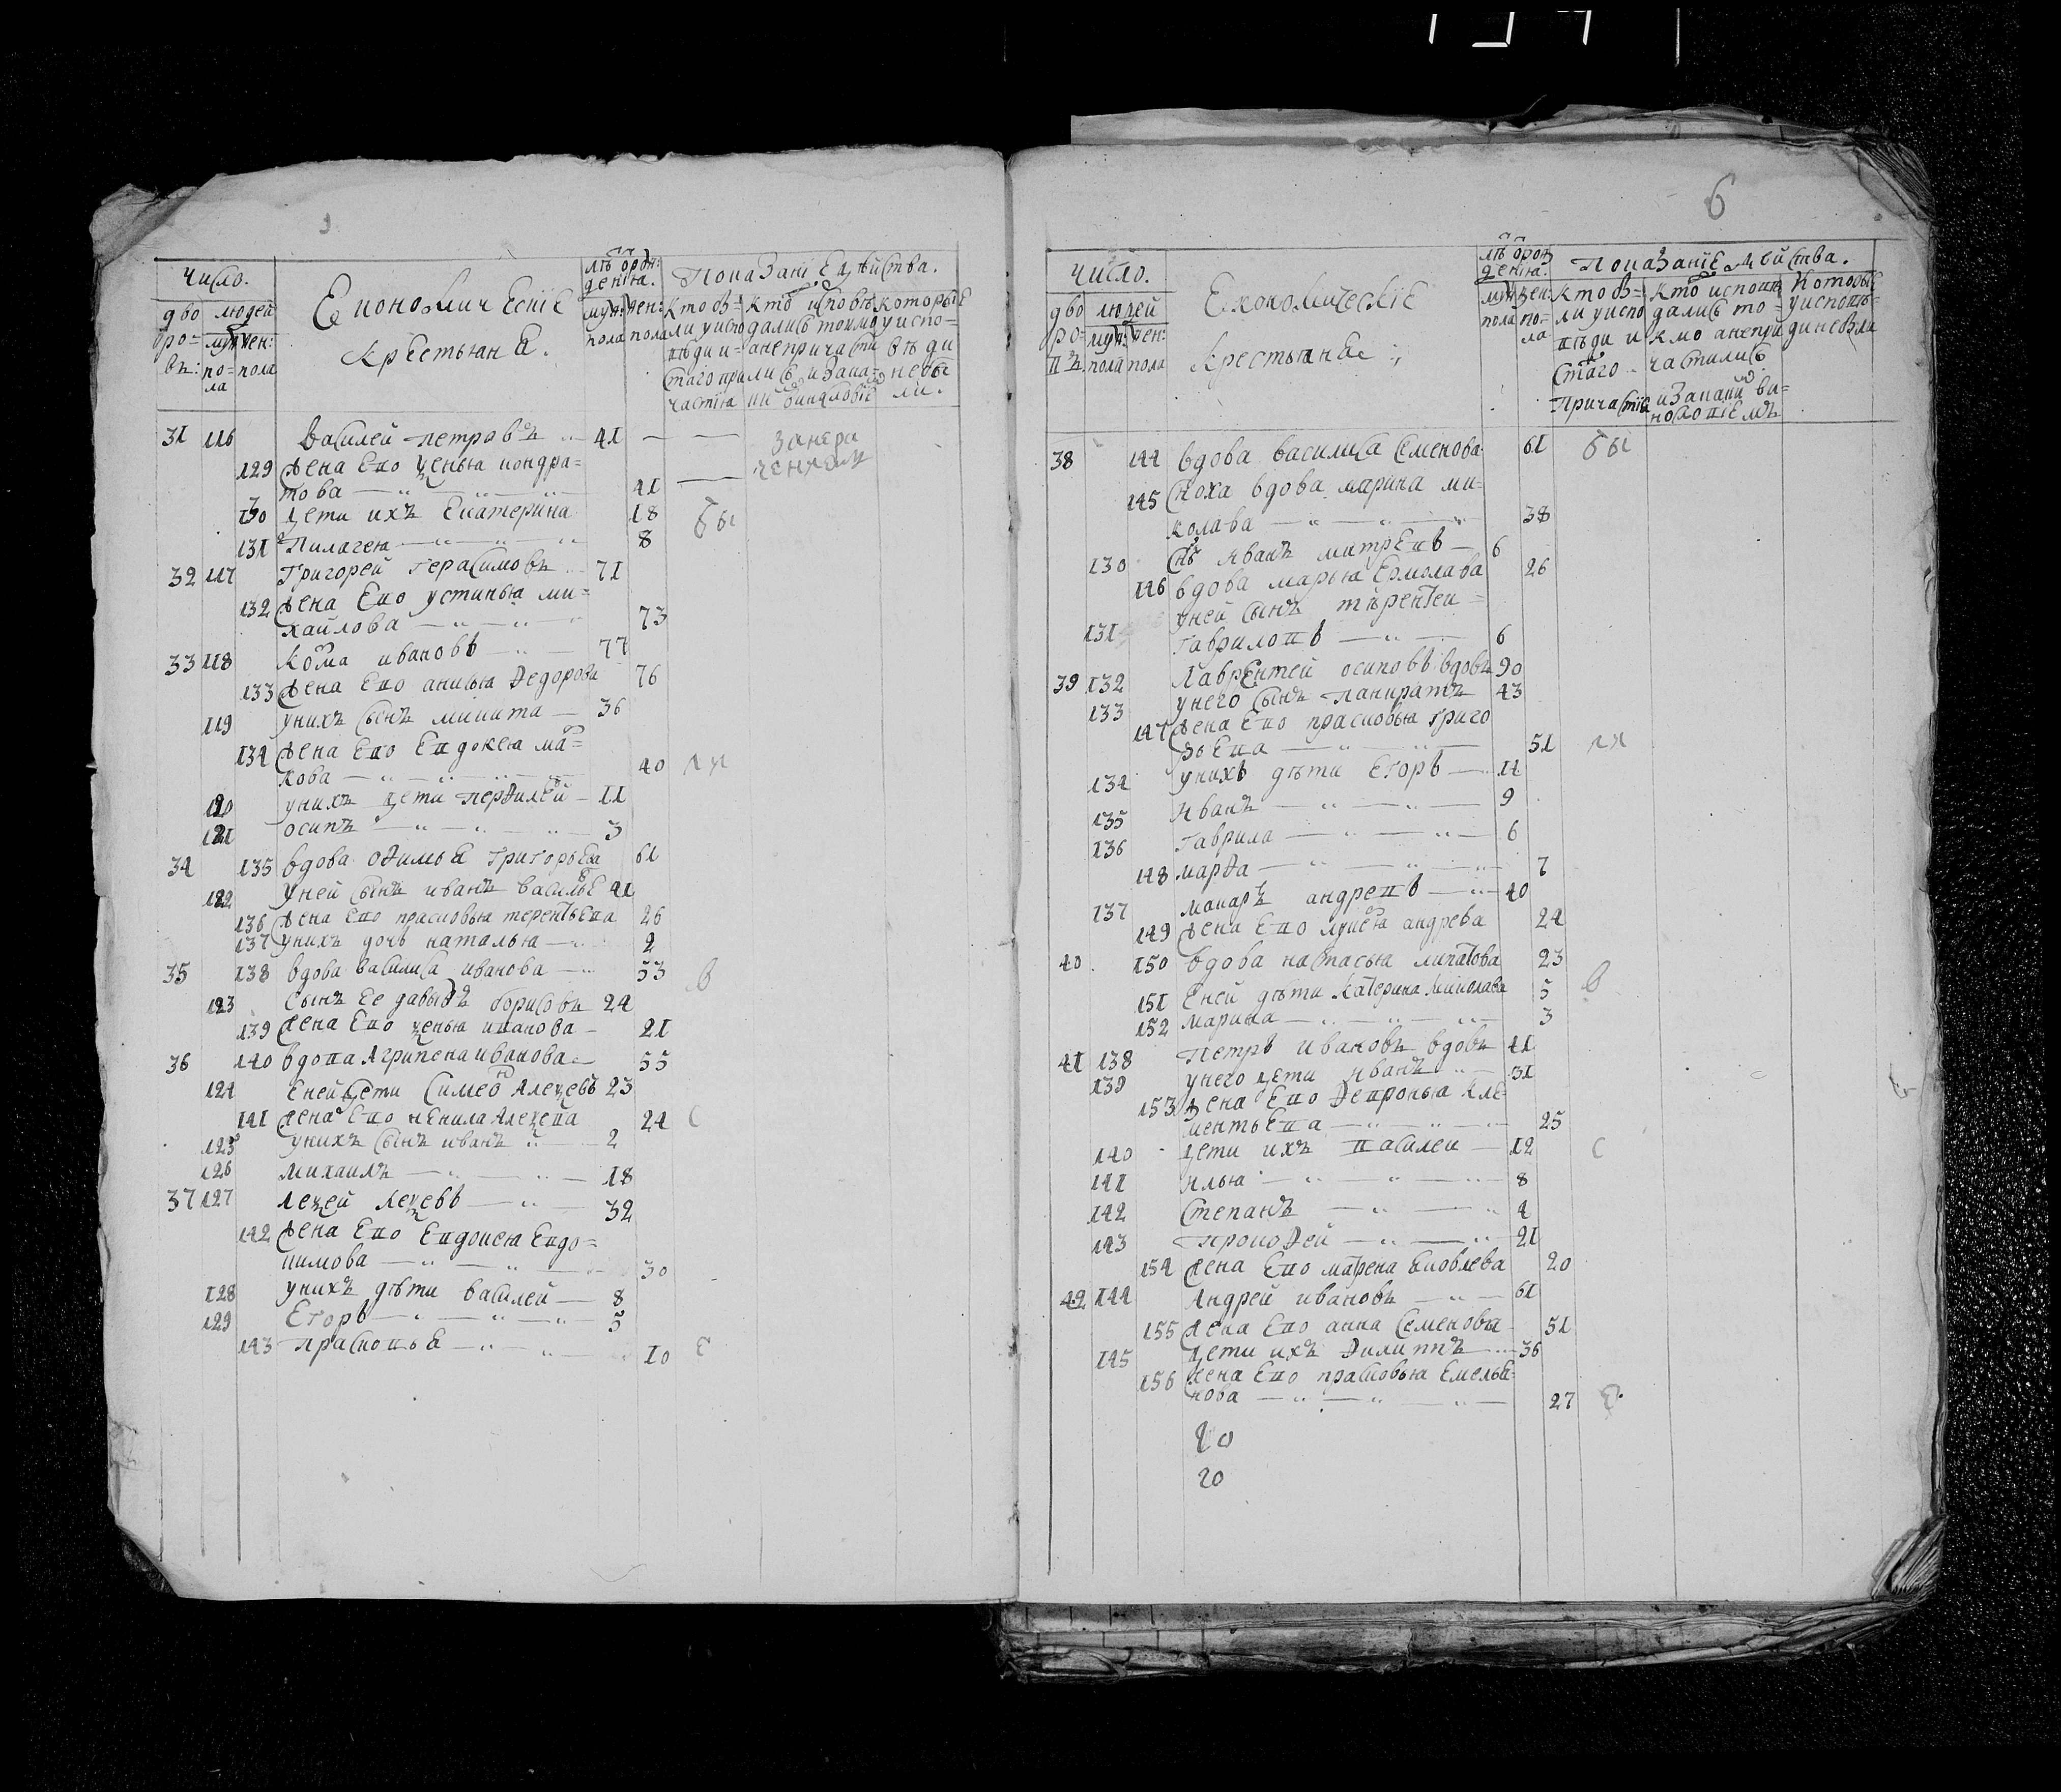 Число.
Економическіе
крестьяна.
лѣтъ отрож:
денія.
Показаніе дѣйства.
дво
ро=
въ:
людей
муж:
по=
ла
жен:
пола
муж:
пола
жен:
пола
кто бы=
ли уиспо
вѣди и
стаго при
частія
кто исповѣ
дались токмо
анепричасти
лись иЗапа=
которые
уиспо=
вѣди
небы
ли.
31 116 Василей петровъ 41 Занера
129 жена Ево ѯенья кондра= ченіемъ
това 41
130 дети ихъ Екатерина 18 бы
131 Пилагея 8
32 117 Григорей Герасимовъ 71
132 жена Ево устинья ми=
хайлова 73
33 118 Козма ивановъ 77
133 жена Ево анисья Ѳедорова 76
119 унихъ сынъ микита 36
134 жена Ево Евдокея ма=
кова 40 ли
120 унихъ дети перѳилей 11
121 осипъ 3
34 135 вдова оѲимья Григорьева 61
122 Уней сынъ иванъ василье 41
136 жена Ево прасковья терентьева 26
137 унихъ дочь наталья 2
35 138 вдова василиса иванова 53 в
123 сынъ Ее давыдъ борисовъ 24
139 жена Ево ѯенья иванова 21
36 140 вдова Агрипена иванова 55
124 Еней дети Симеонъ Алеѯевъ 23
141 жена Ево ненила Алеѯева 24 с
125 унихъ сынъ иванъ 2
126 михаилъ 18
37 127 Алеѯей Алеѯевъ 32
142 жена Ево Евдокея Евдо=
кимова 30
128 унихъ дѣти василей 8
129 Егоръ 5
143 прасковья 10 е
6
Число.
Економическіе
крестьяна.
лѣтъ отрож
денія.
Показаніе дѣйства.
дво
ро=
въ
людей
муж:
пола
жен:
пола
муж
пола
жен:
по=
ла
кто бы=
ли уиспо
вѣди и
стаго
причастія
кто исповѣ
дались то=
кмо анепри
частились
иЗапаки ви=
нословіемъ
Которые
уисповѣ=
ди небыли
38 144 вдова василиса Семенова 61 бы
145 Сноха вдова марина ми=
колава 38
130 Сынъ Иванъ митревъ 6
146 вдова марья Ермолава 26
131 уней сынъ тѣрентеи
Гавриловъ 6
39 132 Лаврентей осиповъ вдовъ 90
133 унего сынъ панкратъ 43
147 жена Ево прасковья Григо
рьева 51 ли
134 унихъ дѣти Егоръ 14
135 Иванъ 9
136 Гаврила 6
148 марѲа 7
137 макаръ андревъ 40
149 жена Ево лукерья андрева 24
40 150 вдова настасья липатова 23
151 Еней дѣти Катерина Миколава 5 в
152 марина 3
41 138 Петръ ивановъ вдовъ 41
139 унего дети Иванъ 31
153 жена Ево Ѳевронья Кле=
ментьева 25
140 дети ихъ василеи 12 с
141 Илья 8
142 Степанъ 4
143 прокоѲей 21
154 жена Ево матрена Яковлева 20
42 144 Андрей ивановъ 61
155 жена Ево анна Семенова 51
145 дети ихъ Ѳилиппъ 36
156 жена Ево прасковья Емелья=
нова 27 е
20
20